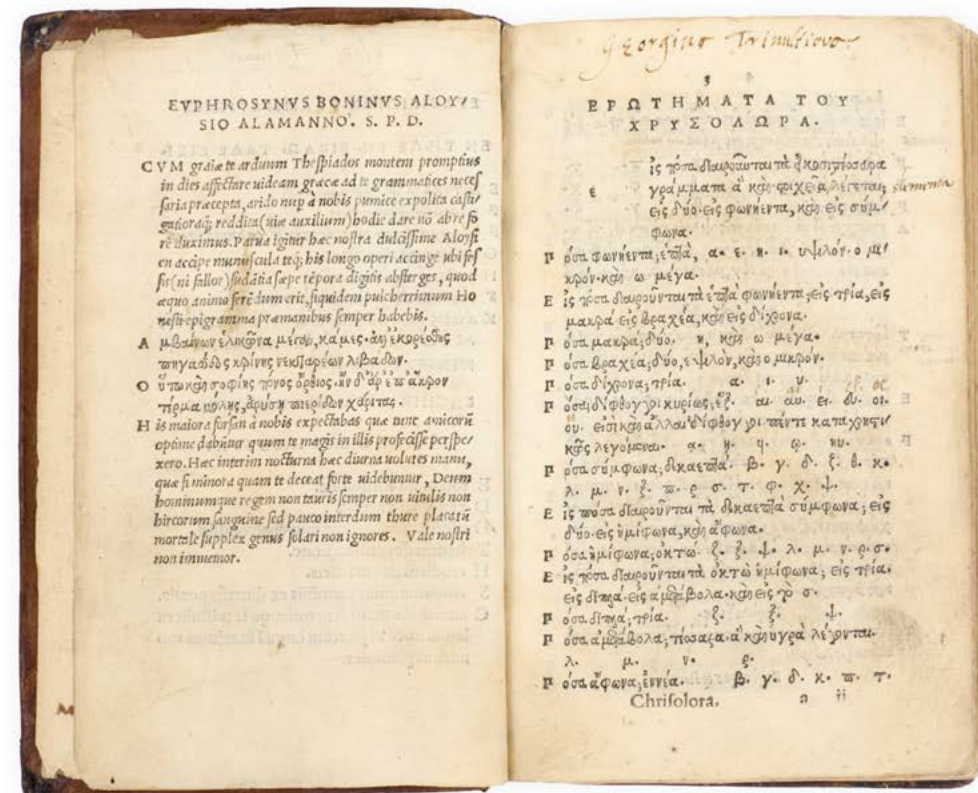 EVPHROSYNVS BONINVS ALOY/
SIO ALAMANNO. S. P. D.
CVM graiæ te arduum Thespiados montem promptius
in dies affectare uideam græcæ ad te grammatices neces
saria præcepta, arido nup à nobis pumice expolita casti/
gatioraq; reddita (uiæ auxilium) hodie dare nō ab re fo
re duximus. Parua igitur hæc nostra dulcissime Aloysi
en accipe munuscula teq; his longo operi accinge ubi fes
sis (ni fallor) sudātia sæpe tēpora digitis absterges, quod
æquo animo ferēdum erit, siquidem pulcherrimum Ho
nesti epigramma præ manibus semper habebis.
Αμβαίνων ἑλικῶνα μέγαν, κάμες· ἀλλ' ἐκορέσθης
πηγασίδος κρίνης νεκταρέων λιβάδων.
Οὕτω καὶ σοφίης πόνος ὄρθιος· ἢν δ' ἄρ' ἐπ' ἄκρον
τέρμα μόλῃς, ἀρύσῃ πιερίδων χάριτας.
His maiora forsan à nobis expectabas quæ tunc amicorū
optime dabūtur quum te magis in illis profecisse perspe/
xero. Hæc interim nocturna hæc diurna uolutes manu,
quæ si minora quam te deceat forte uidebuntur, Deum
hominumque regem non tauris semper non uitulis non
hircorum sanguine sed pauco interdum thure placatū
mortale supplex genus solari non ignores. Vale nostri
non immemor.
Georgius Triuultious
3
ΕΡΩΤΗΜΑΤΑ ΤΟΥ
ΧΡΥΣΟΛΩΡΑ.
εἰς πόσα διαιροῦνται τὰ εἰκοσιτέσσαρα
γράμματα ἃ καὶ στοιχεῖα λέγεται; elementa
εἰς δύο· εἰς φωνήεντα, καὶ εἰς σύμ/
φωνα.
Πόσα φωνήεντα; ἑπτά, α. ε. η. ι. υ ψιλόν. ο μι
κρόν· καὶ ω μέγα.
Εἰς πόσα διαιροῦνται τὰ ἑπτὰ φωνήεντα; εἰς τρία, εἰς
μακρά· εἰς βραχέα, καὶ εἰς δίχρονα.
Πόσα μακρά; δύο. η, καὶ ω μέγα.
Πόσα βραχέα; δύο, ε ψιλόν, καὶ ο μικρόν.
Πόσα δίχρονα; τρία. α. ι. υ.
Πόσαι δίφθογγοι κυρίως; ἕξ. αι. αυ. ει. ευ. οι.
ου. εἰσὶ καὶ ἄλλαι δίφθογγοι πέντε καταχρηστι/
κῶς λεγόμεναι. ᾳ. ῃ. ῳ. ηυ.
Πόσα σύμφωνα; δικαεπτά. β. γ. δ. ζ. θ. κ.
λ. μ. ν. ξ. π. ρ. σ. τ. φ. χ. ψ.
Εἰς πόσα διαιροῦνται τὰ δικαεπτὰ σύμφωνα; εἰς
δύο· εἰς ἡμίφωνα, καὶ ἄφωνα.
Πόσα ἡμίφωνα; ὀκτώ. ζ. ξ. ψ. λ. μ. ν. ρ. σ.
Εἰς πόσα διαιροῦνται τὰ ὀκτὼ ἡμίφωνα; εἰς τρία.
εἰς διπλᾶ· εἰς ἀμετάβολα· καὶ εἰς τὸ σ.
Πόσα διπλᾶ; τρία. ζ. ξ. ψ.
Πόσα ἀμετάβολα; τέσσαρα· ἃ καὶ ὑγρὰ λέγονται.
λ. μ. ν. ρ.
Πόσα ἄφωνα; ἐννέα. β. γ. δ. κ. π. τ.
Chrisolora. a ii